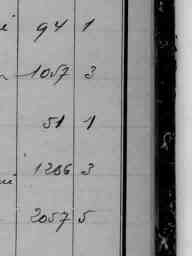 94 1
1057 3
51 1
1286 3
2057 5